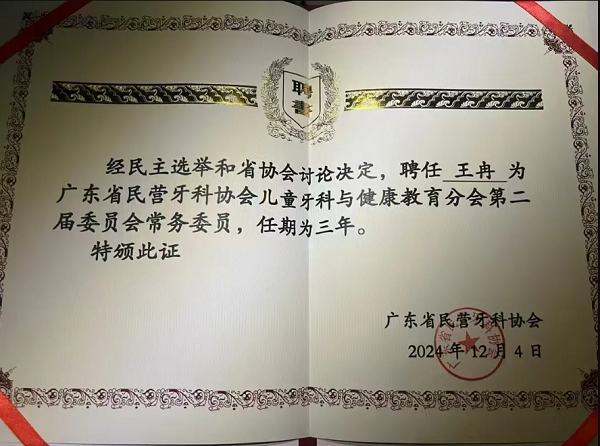 聘書
经民主选举和省协会讨论决定，聘任 王冉 为
广东省民营牙科协会儿童牙科与健康教育分会第二
届委员会常务委员，任期为三年。
特颁此证
广东省民营牙科协会
2024年12月4日
广东省民营牙科协会